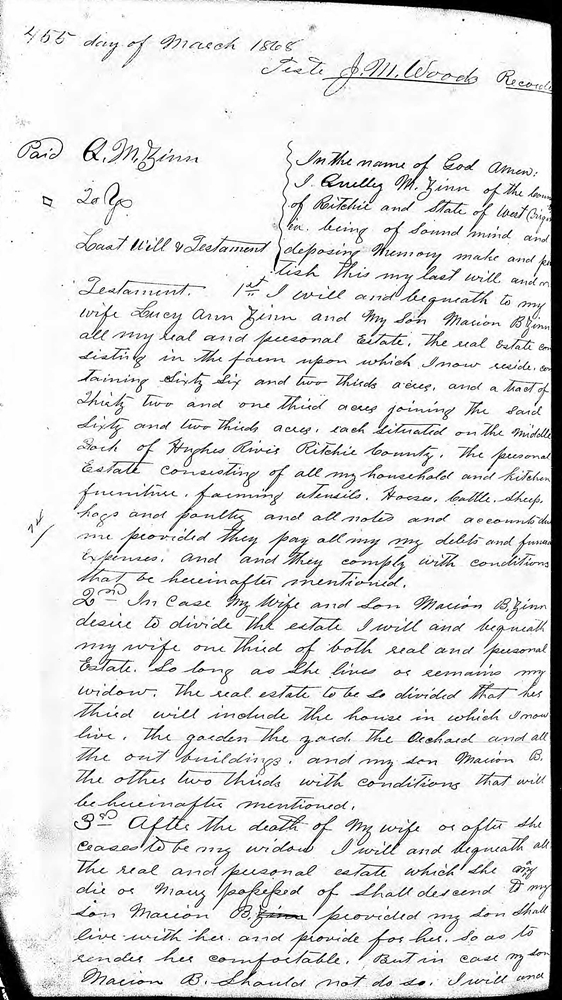 455 day of March 1868
Teste J. M. Wood Recorde
Paid Q. M. Zinn
To
Last Will & Testament
In the name of God Amen:
I. Quilley M. Zinn of the
of Ritchie and State of West Virgi
ia. being of sound mind and
deposing memory make and pu
lish this my last will and
Testament. 1st I will and bequeath to my
wife Lucy Ann Zinn and My Son Marion B. Zinn
all my real and personal Estate, the real Estate con
sisting in the farm upon which I now reside, con
taining Sixty Six and two thirds acres, and a tract of
Thirty two and one third acres joining the said
Sixty and two thirds acres, each situated on the Middle
Fork of Hughes River Ritchie County. The personal
Estate consisting of all my household and kitchen
furniture, farming utensils. Horses, Cattle, Sheep,
hogs and poultry and all notes and accounts due
me provided they pay all my my debts and funeral
Expenses, and and they comply with conditions
that be hereinafter mentioned.
2nd In Case My Wife and Son Marion B. Zinn
desire to divide the estate I will and bequeath
my wife one third of both real and personal
Estate. So long as She lives or remains my
widow. The real estate to be so divided that her
third will include the house in which I now
live, the garden the yard the Orchard and all
the out buildings, and my son Marion B.
the other two thirds with conditions that will
be hereinafter mentioned.
3rd After the death of My wife or after she
ceases to be my widow I will and bequeath all
the real and personal estate which she may
die or Mary possessed of Shall descend to my
son Marion B. Zinn provided my son shall
live with her and provide for her, so as to
render her comfortable. But in case my son
Marion B. Should not do so. I will and